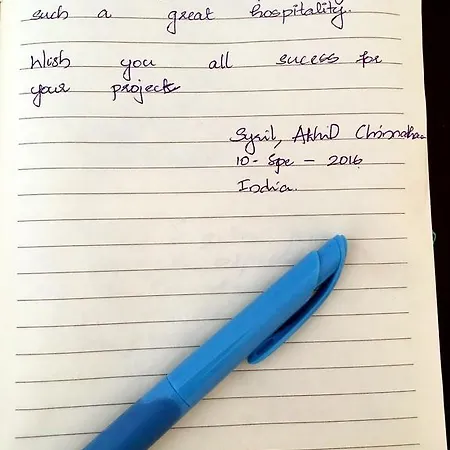 such a great hospitality.
Wish you all sucess for
your projects
Syril, Akhil
10- Spe - 2016
India.